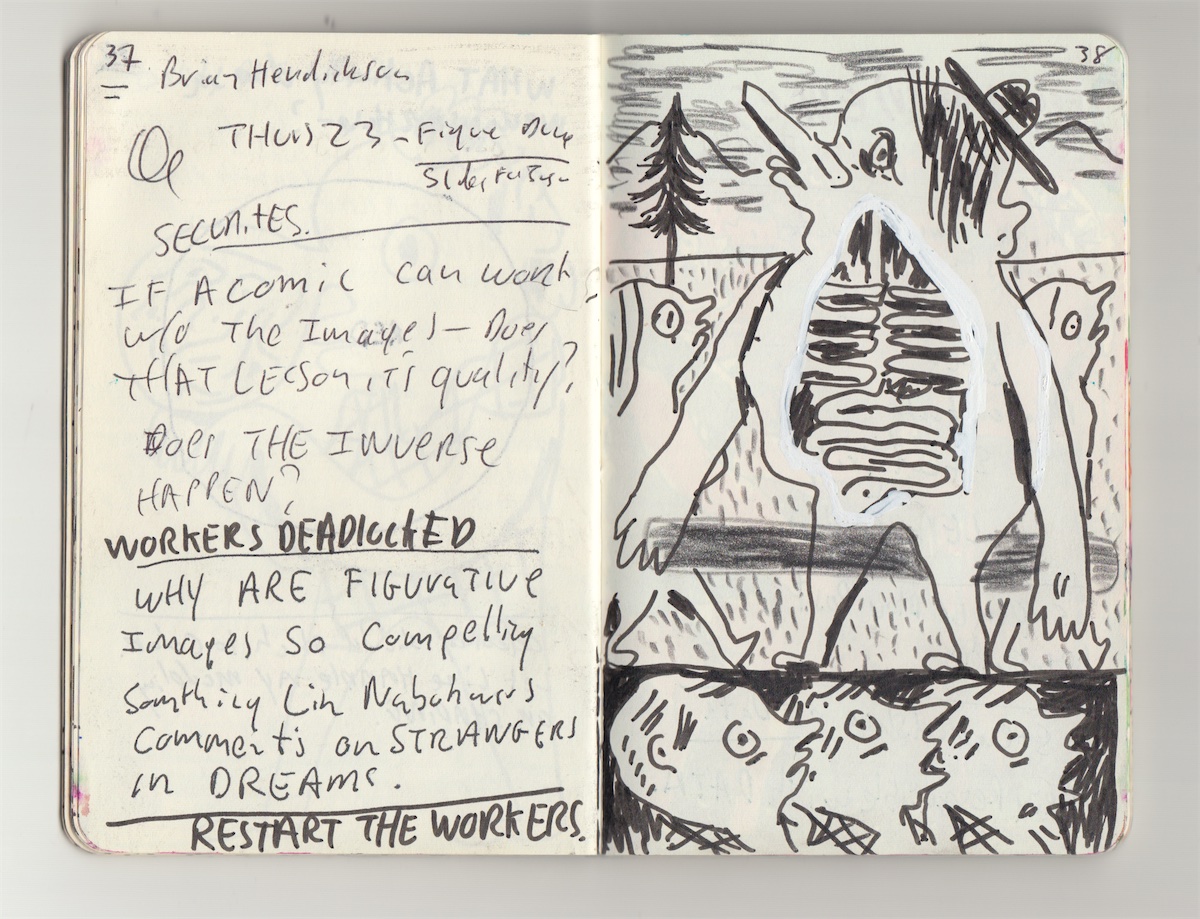 37
Brian Hendrickson
THURS 23 - Figure
SECURITES.
IF A comic can work
w/o The Images - Does
THAT LESSON ITS quality?
Does THE INVERSE
HAPPEN?
WORKERS DEADICCTED
WHY ARE FIGURATIVE
Images So Compelling
Somthing Lik Nabokovs
Comments on STRANGERS
in DREAMS.
RESTART THE WORKERS.
38